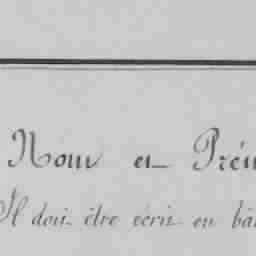 Nom et Prén
Il doit être écrit en bâ